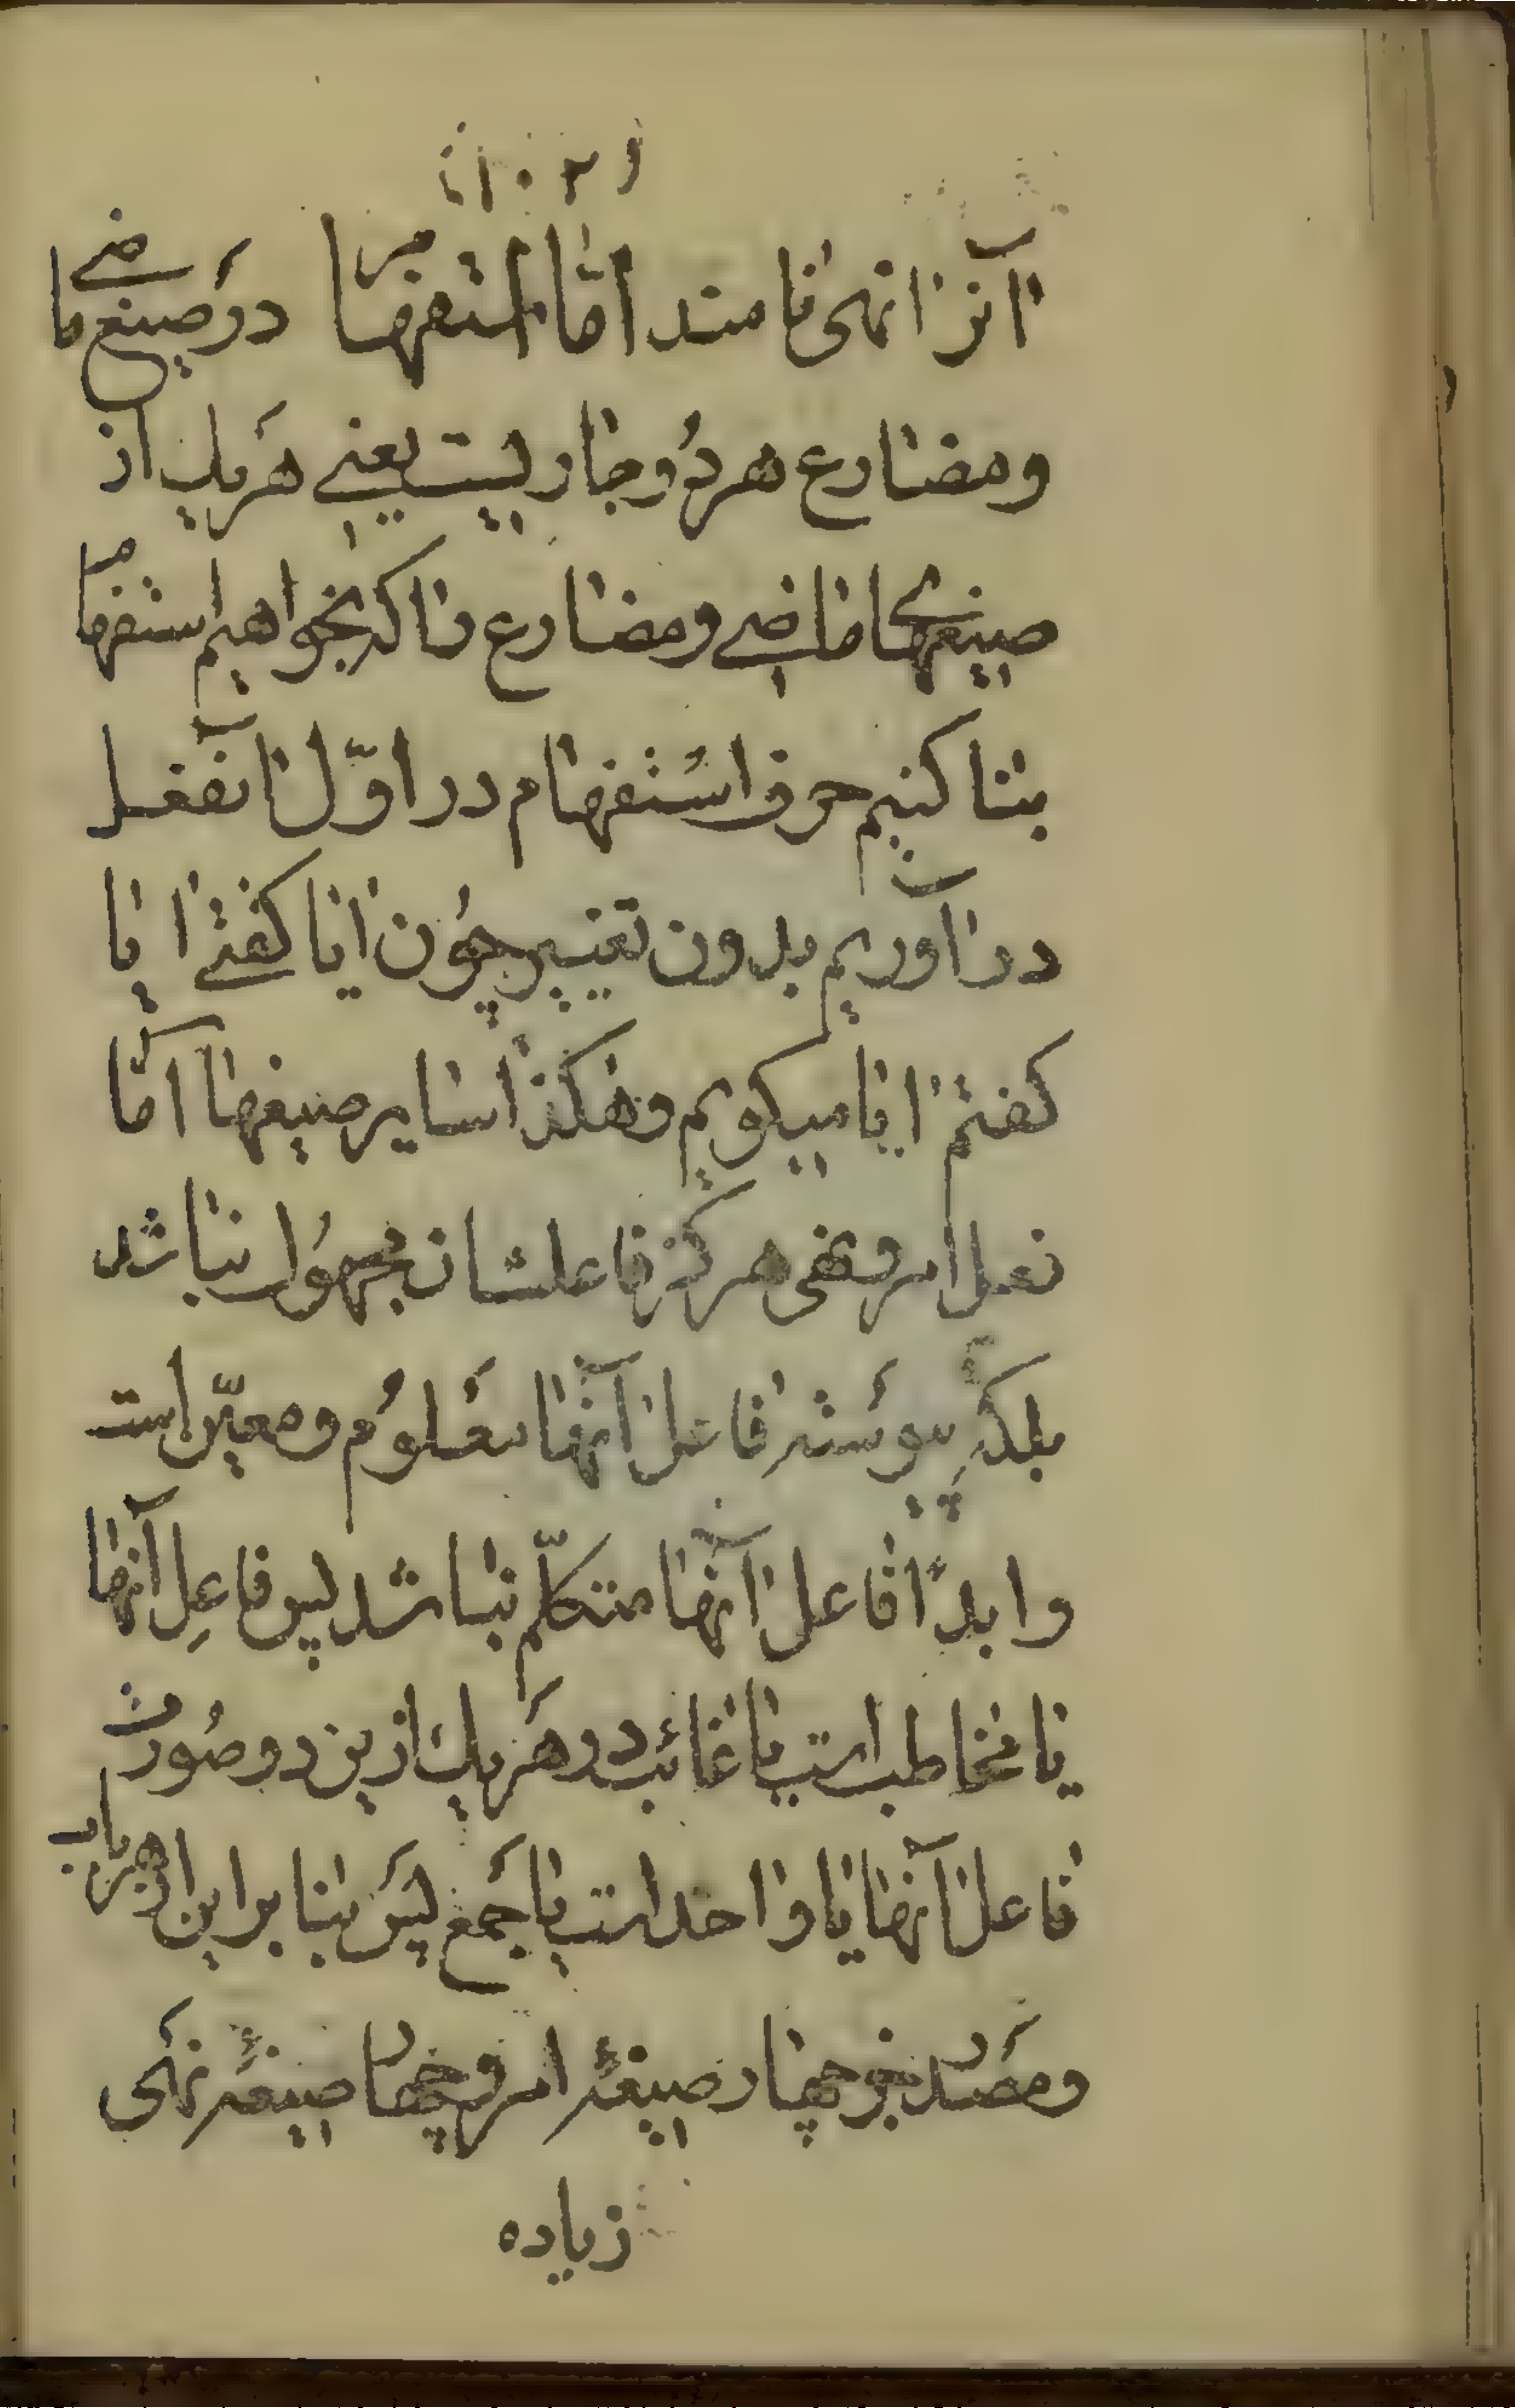 آنرا نهی نامند امّا استفهام در صیغ ماضی
و مضارع هردُو جاریست یعنی هَریک از
صیغهای ماضی و مضارع را که بخواهیم استفهام
بنا کنیم حرف استفهام در اوّل آنفعل
در آوریم بدون تغییر چُون ایا کفتی ایا
کفتم ایا میکویم و هکذا سایر صیغها امّا
فعل امر و نهی هرکز فاعلشان مجهُول نباشد
بلکه پیوَسته فاعل آنها مَعلوُم و معیّن است
و ابدًا فاعل آنها متکلّم نباشد پس فاعِل آنها
یا مخاطب است یا غائب و در هَریک ازین دو صُورت
فاعل آنها یا واحد است یا جَمع پسَ بنا براین از هر باب
و مَصدر نحو چهار صیغهٔ امر و چهار صیغهٔ نهَی
زیاده